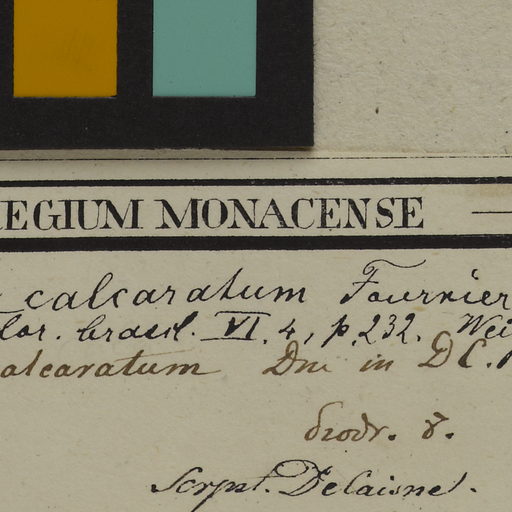 EGIUM MONACENSE
calcaratum Fournier
lor. brasil. VI. 4, p. 232.
alcaratum Dne in DC.
Prodr. 8.
Script. Decaisne.